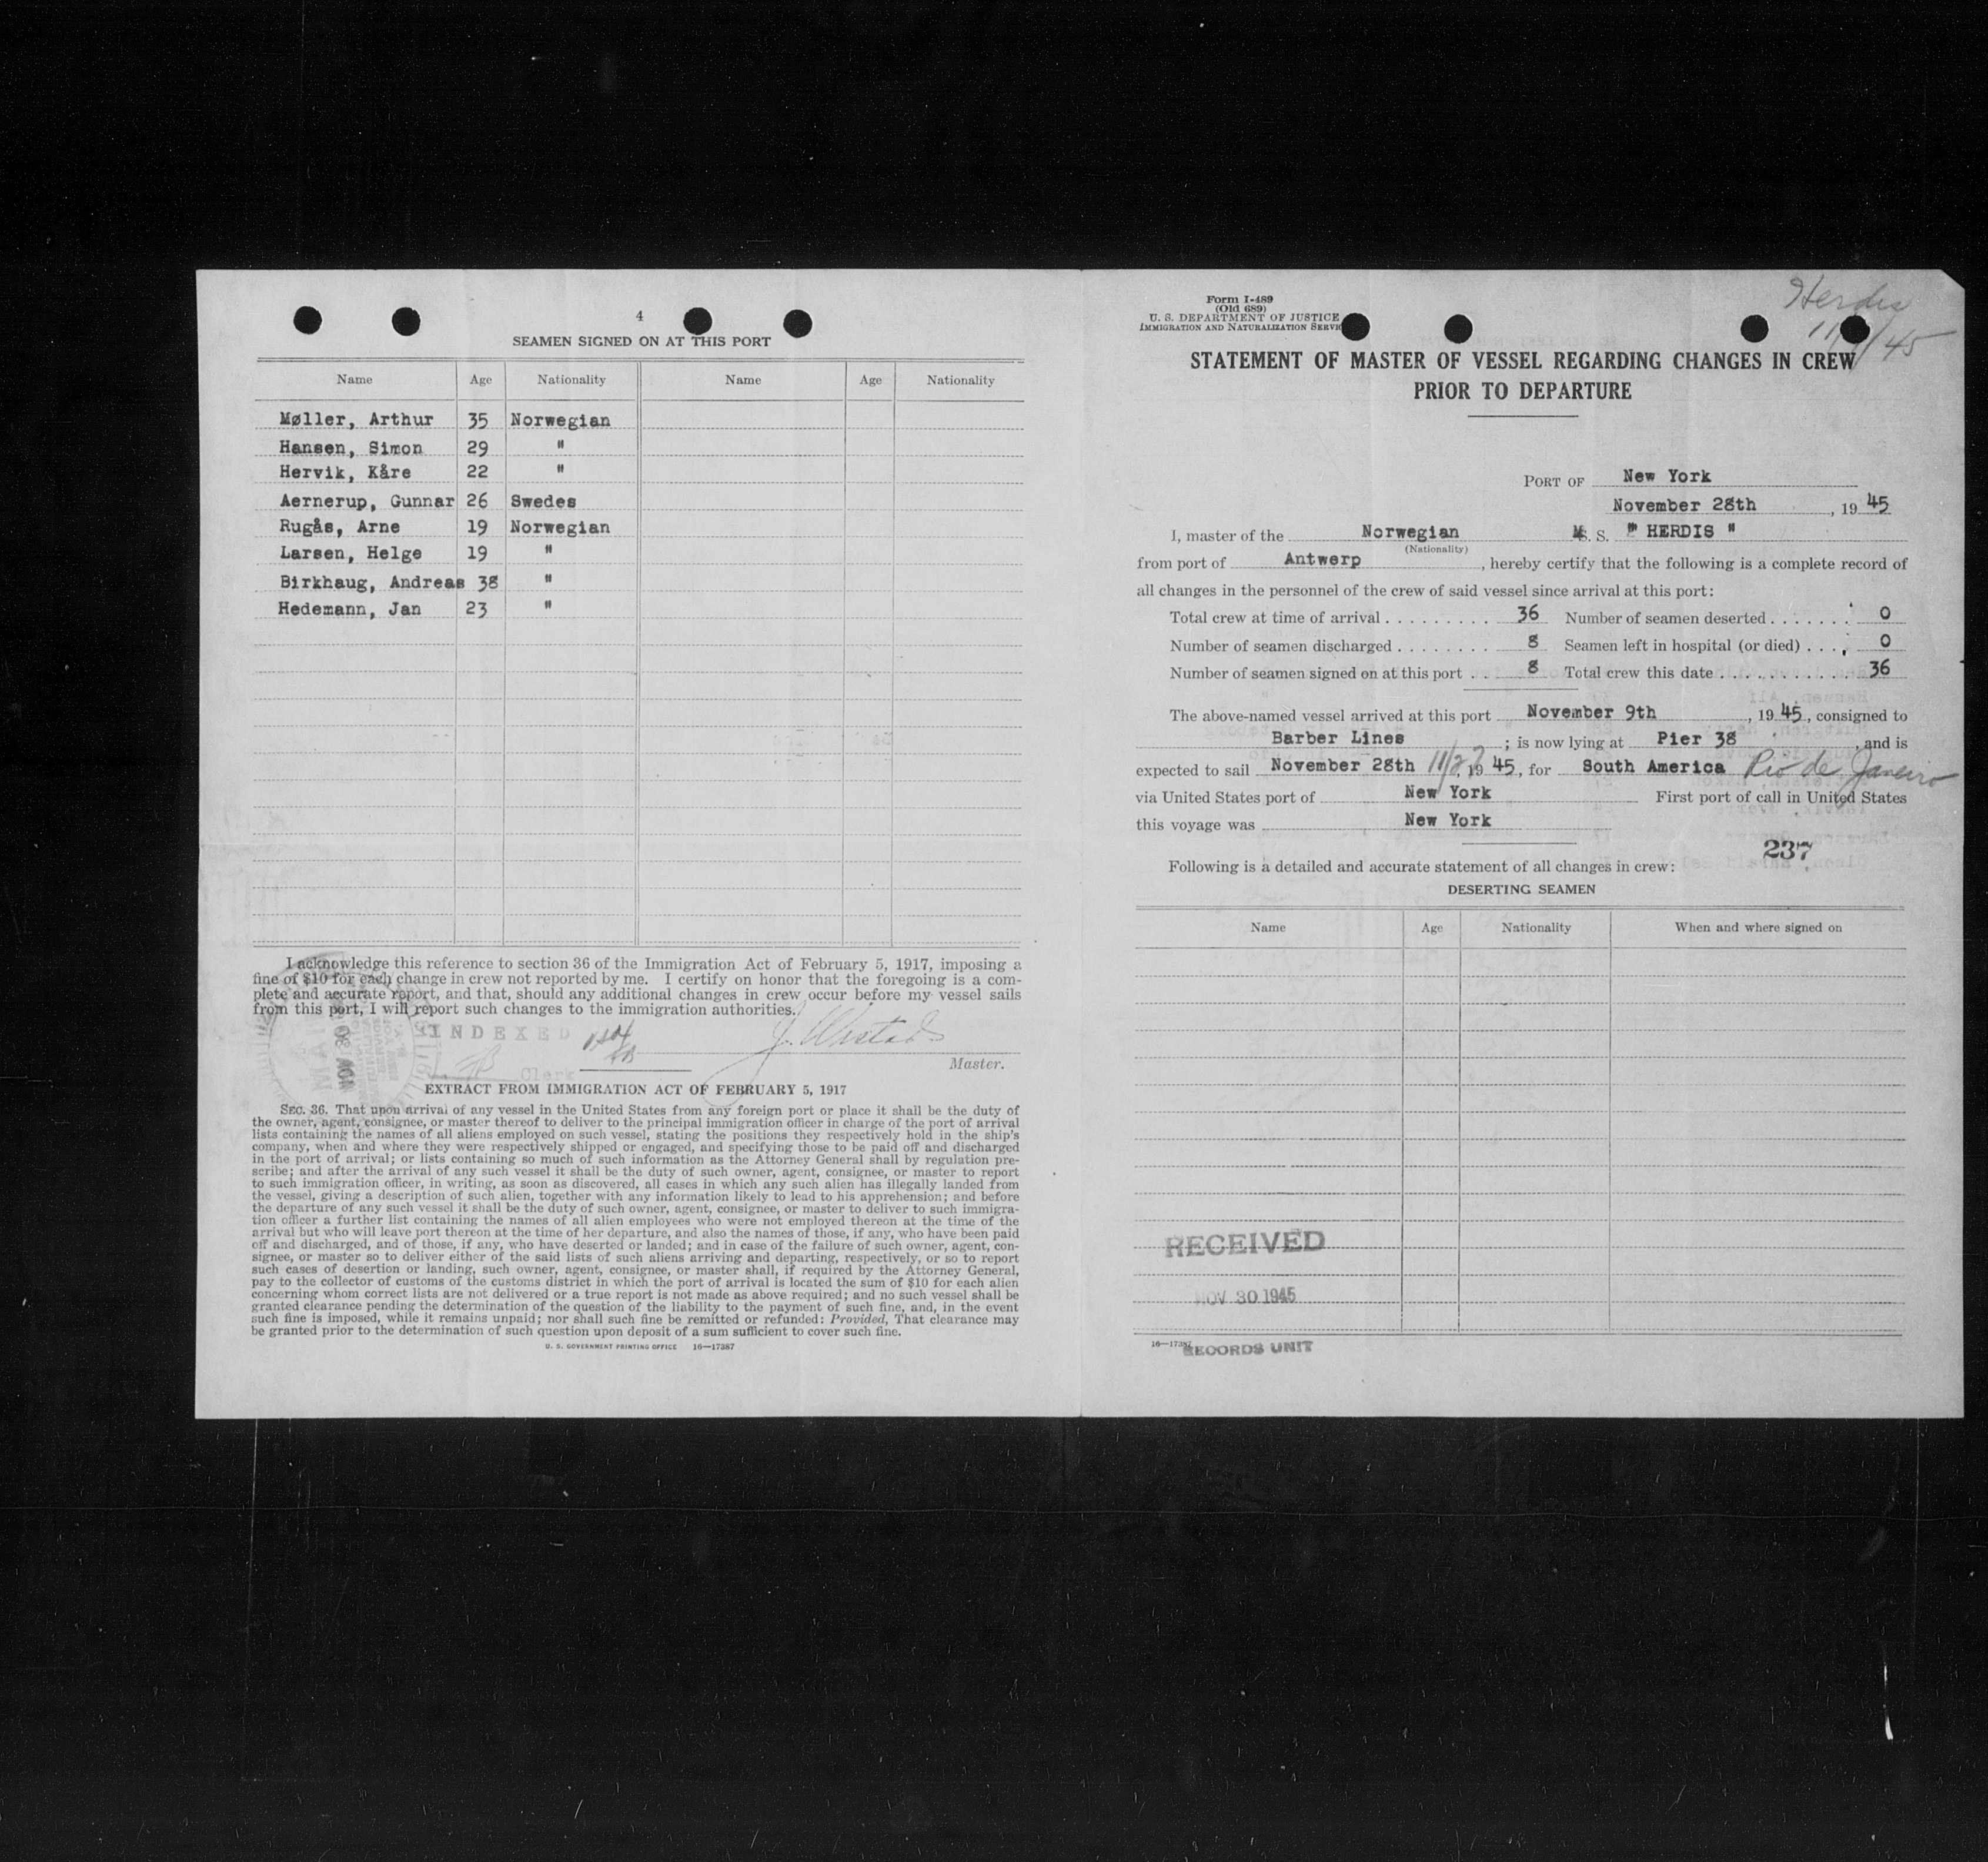 4
SEAMEN SIGNED ON AT THIS PORT
Name Age Nationality Name Age Nationality
Møller, Arthur 35 Norwegian
Hansen, Simon 29 "
Hervik, Kåre 22 "
Aernerup, Gunnar 26 Swedes
Rugås, Arne 19 Norwegian
Larsen, Helge 19 "
Birkhaug, Andreas 38 "
Hedemann, Jan 23 "
I acknowledge this reference to section 36 of the Immigration Act of February 5, 1917, imposing a
fine of $10 for each change in crew not reported by me. I certify on honor that the foregoing is a com-
plete and accurate report, and that, should any additional changes in crew occur before my vessel sails
from this port, I will report such changes to the immigration authorities.
INDEXED
Clerk
Master.
EXTRACT FROM IMMIGRATION ACT OF FEBRUARY 5, 1917
SEC. 36. That upon arrival of any vessel in the United States from any foreign port or place it shall be the duty of
the owner, agent, consignee, or master thereof to deliver to the principal immigration officer in charge of the port of arrival
lists containing the names of all aliens employed on such vessel, stating the positions they respectively hold in the ship's
company, when and where they were respectively shipped or engaged, and specifying those to be paid off and discharged
in the port of arrival; or lists containing so much of such information as the Attorney General shall by regulation pre-
scribe; and after the arrival of any such vessel it shall be the duty of such owner, agent, consignee, or master to report
to such immigration officer, in writing, as soon as discovered, all cases in which any such alien has illegally landed from
the vessel, giving a description of such alien, together with any information likely to lead to his apprehension; and before
the departure of any such vessel it shall be the duty of such owner, agent, consignee, or master to deliver to such immigra-
tion officer a further list containing the names of all alien employees who were not employed thereon at the time of the
arrival but who will leave port thereon at the time of her departure, and also the names of those, if any, who have been paid
off and discharged, and of those, if any, who have deserted or landed; and in case of the failure of such owner, agent, con-
signee, or master so to deliver either of the said lists of such aliens arriving and departing, respectively, or so to report
such cases of desertion or landing, such owner, agent, consignee, or master shall, if required by the Attorney General,
pay to the collector of customs of the customs district in which the port of arrival is located the sum of $10 for each alien
concerning whom correct lists are not delivered or a true report is not made as above required; and no such vessel shall be
granted clearance pending the determination of the question of the liability to the payment of such fine, and, in the event
such fine is imposed, while it remains unpaid; nor shall such fine be remitted or refunded: Provided, That clearance may
be granted prior to the determination of such question upon deposit of a sum sufficient to cover such fine.
U. S. GOVERNMENT PRINTING OFFICE 16—17387
Form I-489
(Old 689)
U. S. DEPARTMENT OF JUSTICE
IMMIGRATION AND NATURALIZATION SERVICE
Herdis
STATEMENT OF MASTER OF VESSEL REGARDING CHANGES IN CREW
PRIOR TO DEPARTURE
PORT OF New York
November 28th, 1945
I, master of the Norwegian M. S. " HERDIS "
(Nationality)
from port of Antwerp, hereby certify that the following is a complete record of
all changes in the personnel of the crew of said vessel since arrival at this port:
Total crew at time of arrival . . . . . . . . . 36 Number of seamen deserted . . . . . . . 0
Number of seamen discharged . . . . . . . . 8 Seamen left in hospital (or died) . . . . 0
Number of seamen signed on at this port . . 8 Total crew this date . . . . . . . . . . . . 36
The above-named vessel arrived at this port November 9th, 1945, consigned to
Barber Lines; is now lying at Pier 38, and is
expected to sail November 28th 11/27, 1945, for South America Rio de Janeiro
via United States port of New York First port of call in United States
this voyage was New York
237
Following is a detailed and accurate statement of all changes in crew:
DESERTING SEAMEN
Name Age Nationality When and where signed on
RECEIVED
NOV 30 1945
RECORDS UNIT